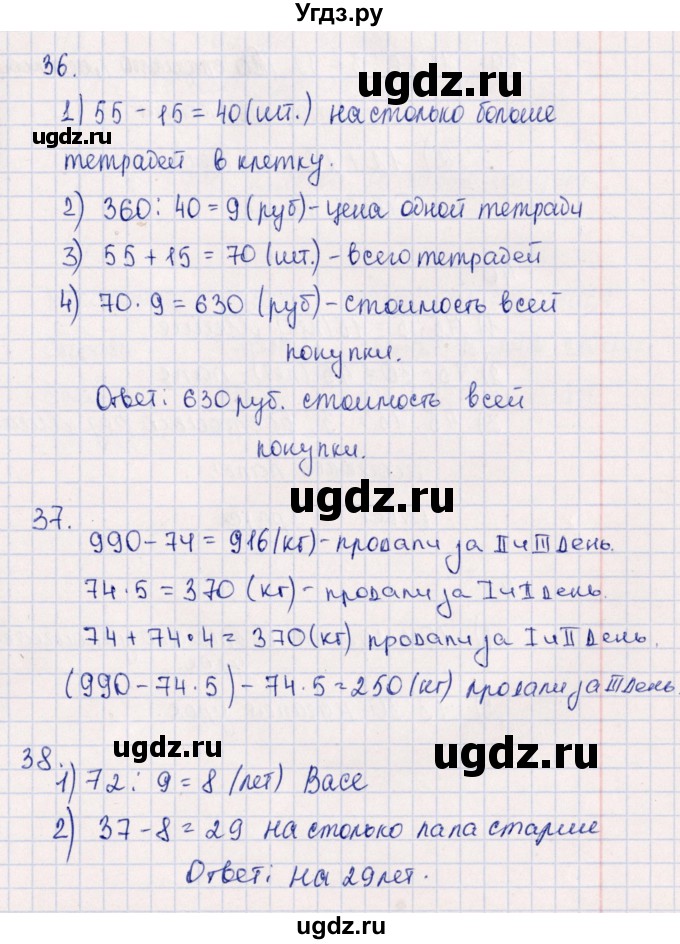 Угдз.ру
36.
ugdz.ru
1) 55 - 15 = 40 (шт.) на столько больше
ugdz.ru
тетрадей в клетку.
2) 360 : 40 = 9 (руб) - цена одной тетради
3) 55 + 15 = 70 (шт.) - всего тетрадей
4) 70 · 9 = 630 (руб) - стоимость всей
покупки.
Ответ: 630 руб. стоимость всей
покупки.
ugdz.ru
37.
990 - 74 = 916 (кг) - продали за II и III день.
74 · 5 = 370 (кг) - продали за I и II день.
74 + 74 · 4 = 370 (кг) продали за I и II день.
(990 - 74 · 5) - 74 · 5 = 250 (кг) продали за III день.
38.
ugdz.ru
ugdz.ru
1) 72 : 9 = 8 (лет) Васе
2) 37 - 8 = 29 на столько папа старше
Ответ: на 29 лет.
ugdz.ru
ugdz.ru